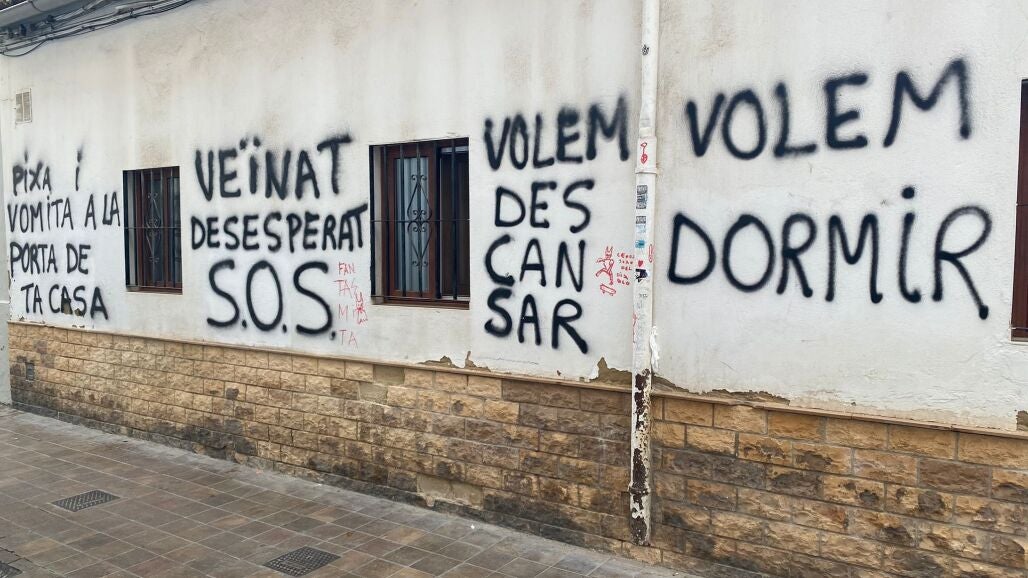 PiXA i
VOMITA A LA
PORTA DE
TA CASA
VEÏNAT
DESESPERAT
S.O.S.
FAN
TAS
Mi
TA
VOLEM
DES
CAN
SAR
VOLEM
DORMiR